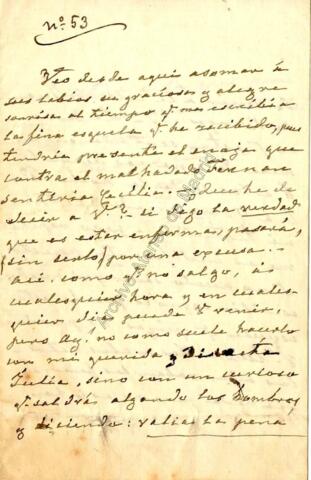 nº. 53
Veo desde aqui asomar á
sus labios su graciosa y alegre
sonrisa al tiempo q. me escribia
la fina esquela q. he recibido, pues
tendria presente el enojo que
contra el malhadado Fernan
sentiria Cecilia. ¿Que he de
decir a V.? si digo la verdad
que es estar enferma, pasará,
(sin serlo) por una excusa.—
Asi, como q. no salgo, á
cualesquier hora y en cuales-
quier dia puede V. venir,
pero Ay! no como suele hacerlo
con mi querida y discreta
Julia, sino con un curioso
q. saldrá alzando los hombros,
y diciendo: valia la pena
Archivo Ateneo de Madrid